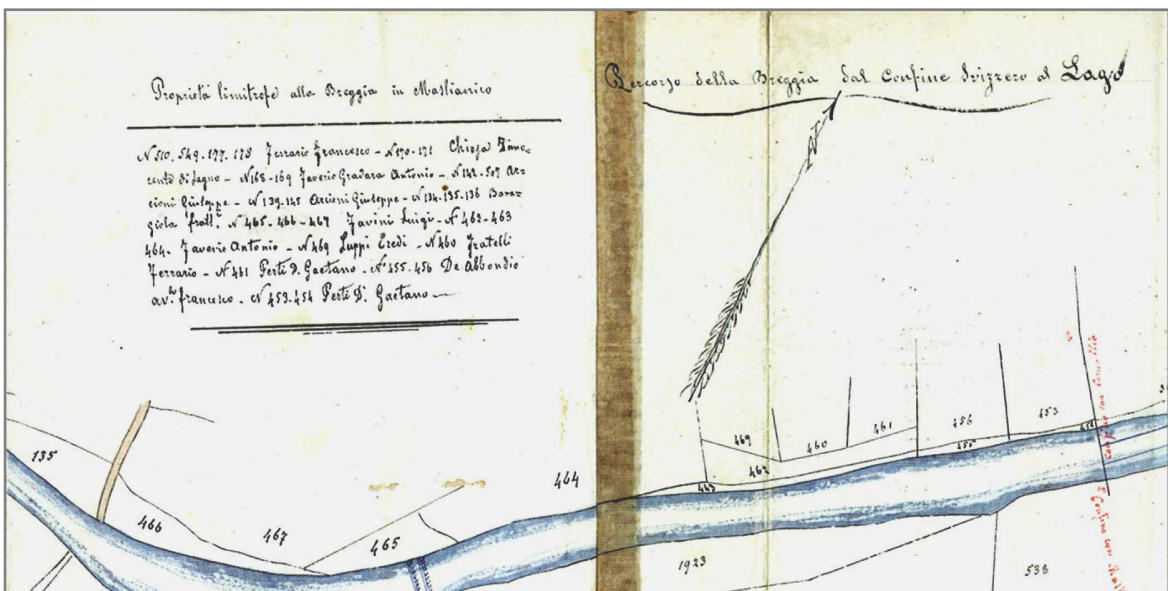 Proprietà limitrofe alla Breggia in Maslianico
N 510. 549. 177. 178 Ferrario Francesco - N 170-171 Chiesa
di Sagno - N 168-169 Saverio Gradara Antonio - N 142-507
Giuseppe - N 139-145 Giuseppe - N 134-135-136
frat.lli N 465-466-467 Luigi - N 462-463
464. Saverio Antonio - N 469 Luppi Eredi - N 460 Fratelli
Ferrario - N 461 Perti D. Gaetano - N 455-456 De Abbondio
av.to francesco. N 453-454 Perti D. Gaetano
Percorso della Breggia dal Confine Svizzero al Lago
N
135
466
467
465
464
463
469
462
460
461
456
455
453
454
1923
538
Confine con
Confine con